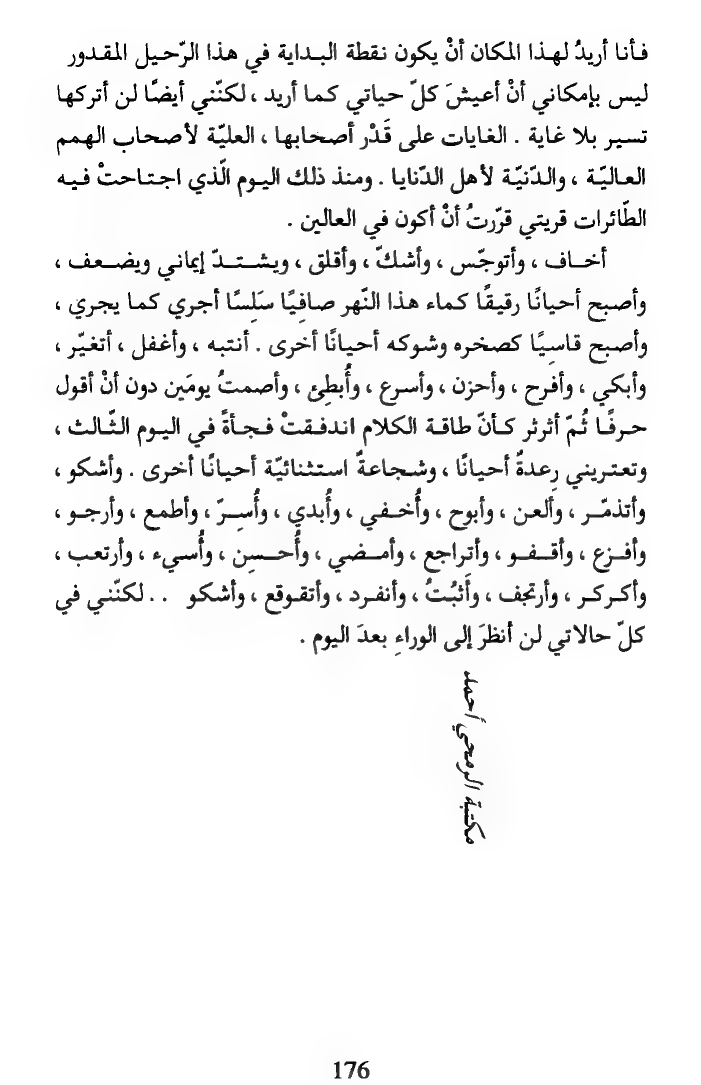 فأنا أريدُ لهذا المكان أنْ يكون نقطة البداية في هذا الرّحيل المقدور
ليس بإمكاني أنْ أعيشَ كلّ حياتي كما أريد ، لكنّني أيضًا لن أتركها
تسير بلا غاية . الغايات على قَدْر أصحابها ، العليّة لأصحاب الهمم
العاليّة ، والدّنيّة لأهل الدّنايا . ومنذ ذلك اليوم الّذي اجتاحتْ فيه
الطّائرات قريتي قرّرتُ أنْ أكون في العالين .
أخاف ، وأتوجّس ، وأشكّ ، وأقلق ، ويشتدّ إيماني ويضعف ،
وأصبح أحيانًا رقيقًا كماء هذا النّهر صافِيًا سَلِسًا أجري كما يجري ،
وأصبح قاسِيًا كصخره وشوكه أحيانًا أخرى . أنتبه ، وأغفل ، أتغيّر ،
وأبكي ، وأفرح ، وأحزن ، وأسرع ، وأُبطِئ ، وأصمتُ يومَين دون أنْ أقول
حرفًا ثُمّ أثرثر كأنّ طاقة الكلام اندفقتْ فجأةً في اليوم الثّالث ،
وتعتريني رِعدةٌ أحيانًا ، وشجاعةٌ استثنائيّة أحيانًا أخرى . وأشكو ،
وأتذمّر ، وألعن ، وأبوح ، وأُخفي ، وأُبدي ، وأُسِرّ ، وأطمع ، وأرجو ،
وأفزع ، وأقفو ، وأتراجع ، وأمضي ، وأُحسِن ، وأُسيء ، وأرتعب ،
وأكركر ، وأرتجف ، وأَثبُتُ ، وأنفرد ، وأتقوقع ، وأشكو .. لكنّني في
كلّ حالاتي لن أنظرَ إلى الوراءِ بعدَ اليوم .
مكتبة الرمحي أحمد
176